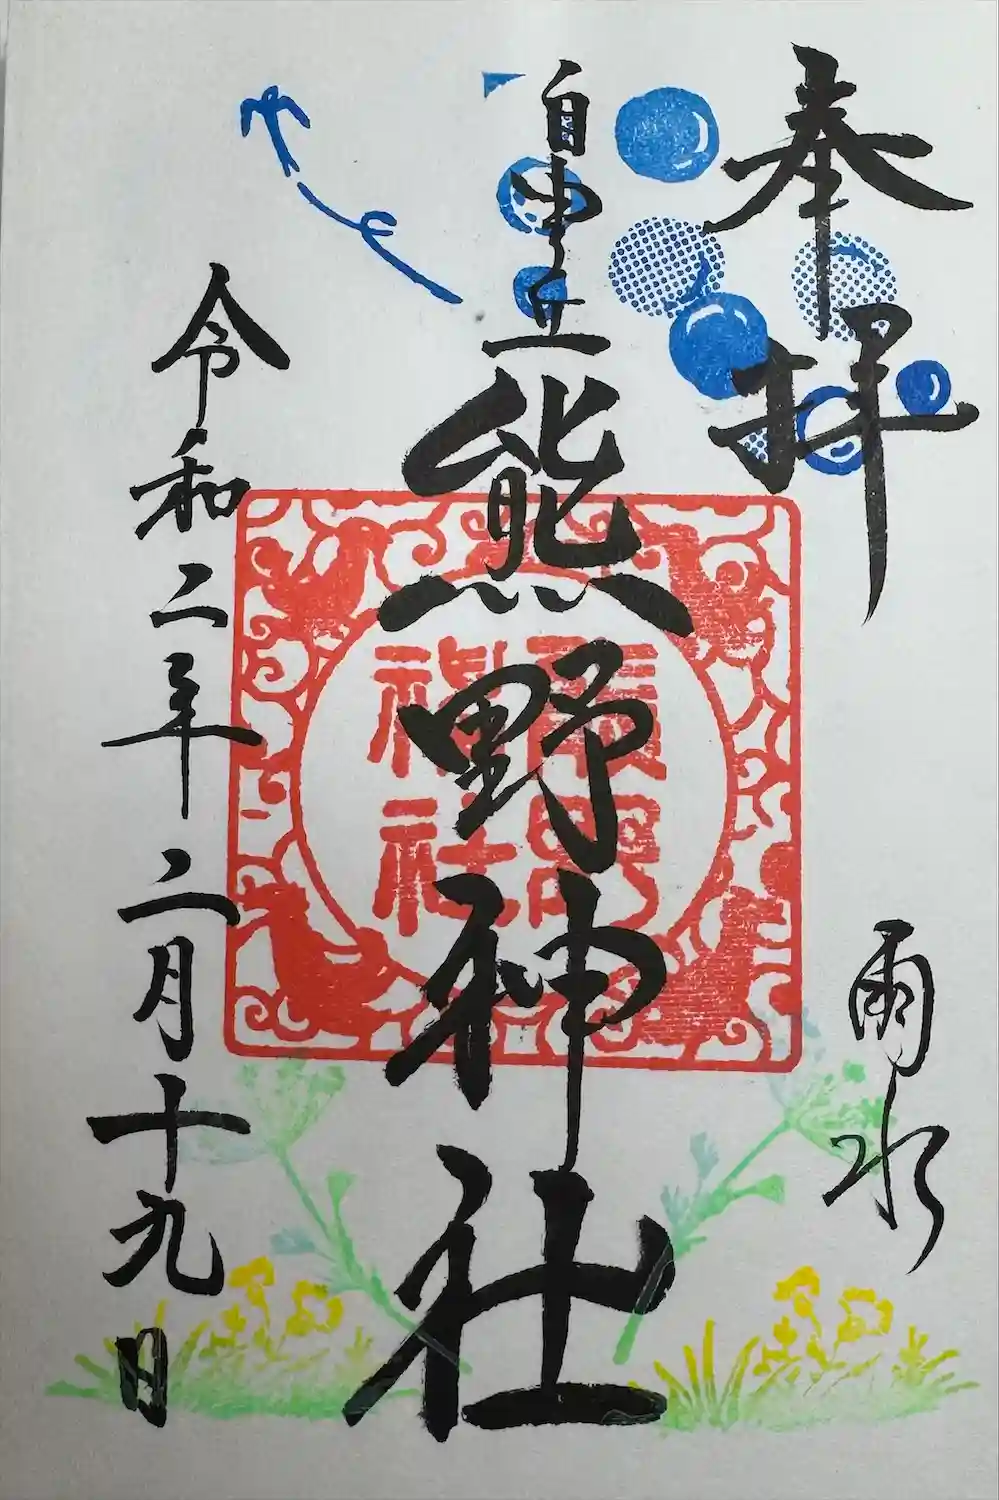 奉拝
雨水
自由ヶ丘
熊野神社
令和二年二月十九日